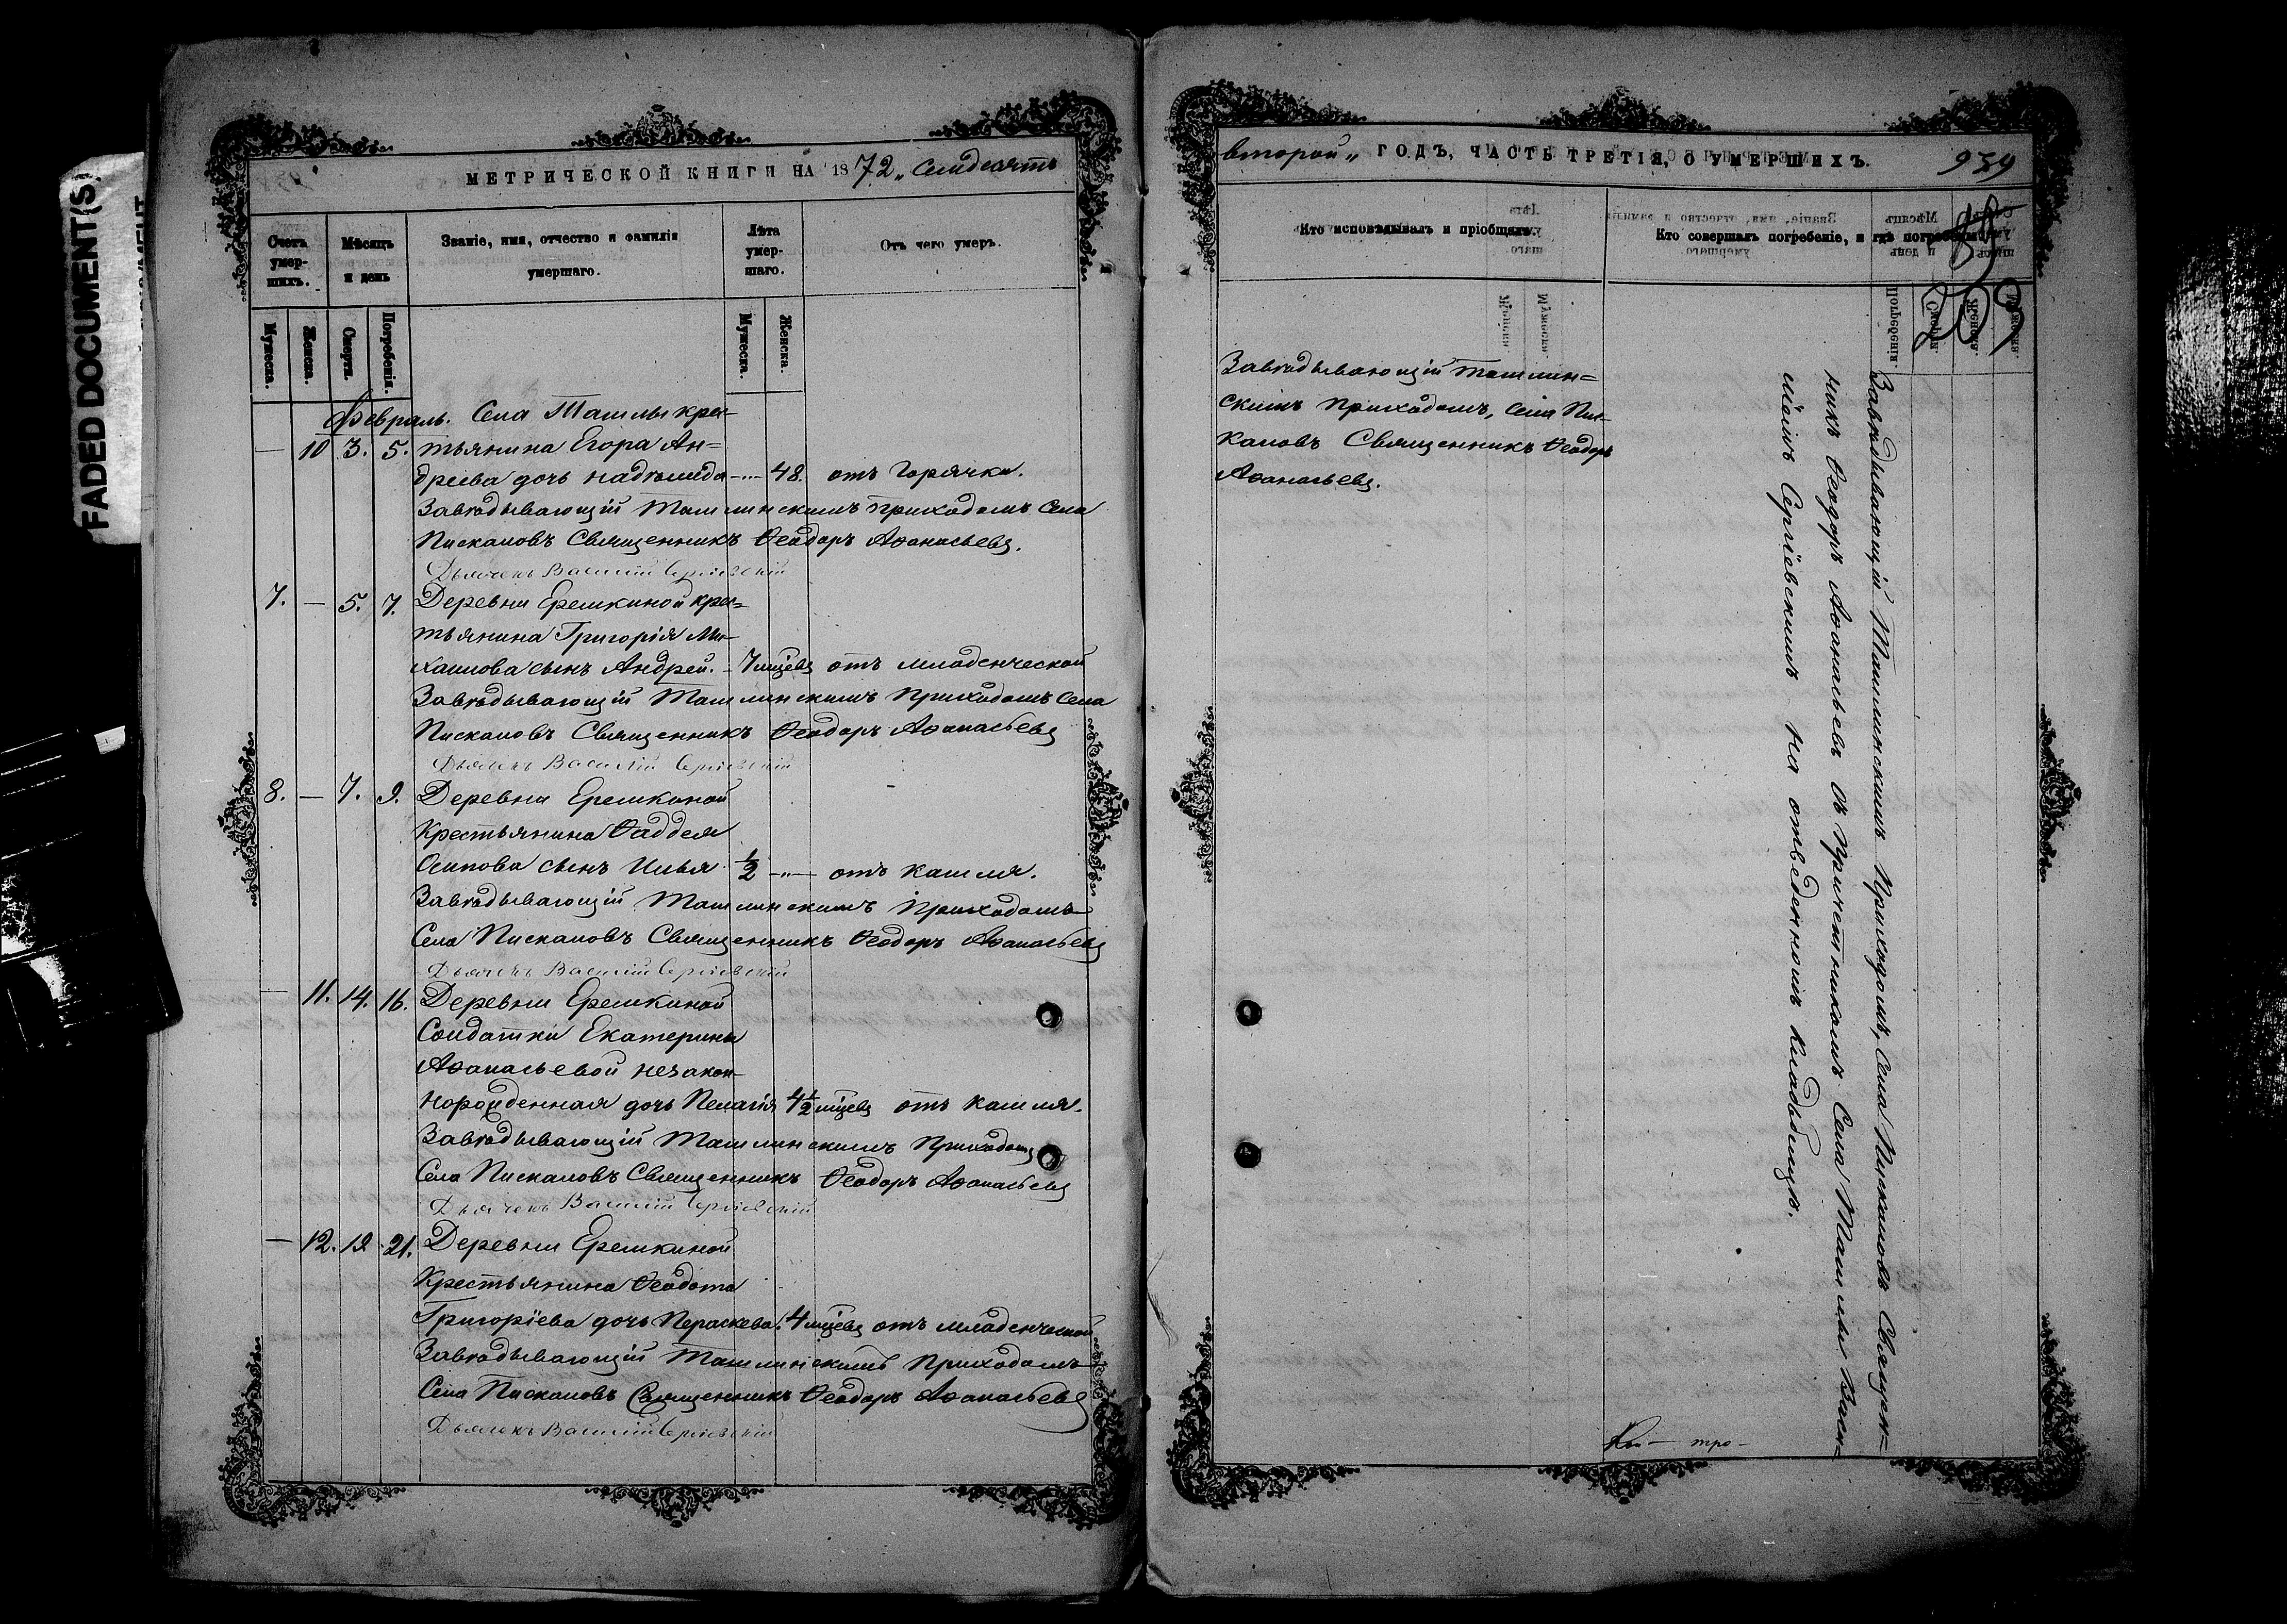 FADED DOCUMENT(S)
МЕТРИЧЕСКОЙ КНИГИ НА 1872 „ Семдесятъ
Счетъ умер-шихъ.
Мѣсяцъ и день
Званіе, имя, отчество и фамилія умершаго.
Лѣта умер-шаго.
Отъ чего умеръ.
Мужеска.
Женска.
Смерти.
Погребенія.
Мужеска.
Женска.
Февраль. Села Ташлы крес-
— 10 3. 5. тьянина Егора Ан-
дреева дочь Надежда —„— 48. отъ горячки.
Завѣдывающій Ташлинскимъ приходомъ села
Пискаловъ Священникъ Ѳеодоръ Аѳанасьевъ.
Дьячекъ Василій Сергіевскій
7. — 5. 7. Деревни Еремкиной крес-
тьянина Григорія Ми-
хаилова сынъ Андрей. – 7 мцевъ отъ младенческой
Завѣдывающій Ташлинскимъ Приходомъ Села
Пискаловъ Священникъ Ѳеодоръ Аѳанасьевъ
Дьячекъ Василій Сергіевскій
8. — 7. 9. Деревни Еремкиной
Крестьянина Ѳаддея
Осипова сынъ Илья. 1/2 —„— отъ кашля.
Завѣдывающій Ташлинскимъ Приходомъ
Села Пискаловъ Священникъ Ѳеодоръ Аѳанасьевъ
Дьячекъ Василій Сергіевскій
— 11. 14. 16. Деревни Еремкиной
Солдатки Екатерины
Аѳанасьевой незакон-
норожденная дочь Пелагія 4 1/2 мцевъ отъ кашля.
Завѣдывающій Ташлинскимъ Приходомъ
Села Пискаловъ Священникъ Ѳеодоръ Аѳанасьевъ
Дьячекъ Василій Сергіевскій
— 12. 19. 21. Деревни Еремкиной
Крестьянина Ѳеодота
Григоріева дочь Пераскева. 4 мцевъ отъ младенческой
Завѣдывающій Ташлинскимъ Приходомъ
Села Пискаловъ Священникъ Ѳеодоръ Аѳанасьевъ
Дьячекъ Василій Сергіевскій
второй „ ГОДЪ, ЧАСТЬ ТРЕТІЯ, О УМЕРШИХЪ.
939
Кто исповѣдывалъ и пріобщалъ.
Кто совершалъ погребеніе, и гдѣ погребены.
Завѣдывающій Ташлин-
скимъ Приходомъ, села Пис-
каловъ Священникъ Ѳеодоръ
Аѳанасьевъ.
Завѣдывающій Ташлинскимъ Приходомъ, Села Пискаловъ Священ-
никъ Ѳеодоръ Аѳанасьевъ съ причетникомъ Села Ташлы Васи-
ліемъ Сергіевскимъ на отведенномъ кладбищѣ.